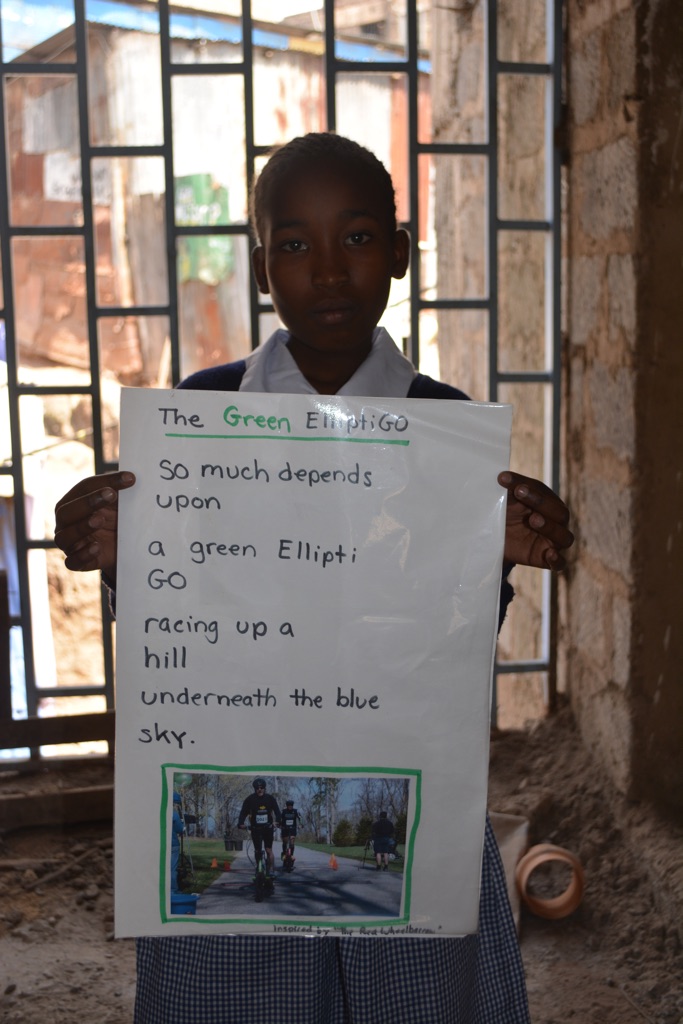 The Green ElliptiGO
So much depends
upon
a green Ellipti
GO
racing up a
hill
underneath the blue
sky.
Inspired by "The Red Wheelbarrow"